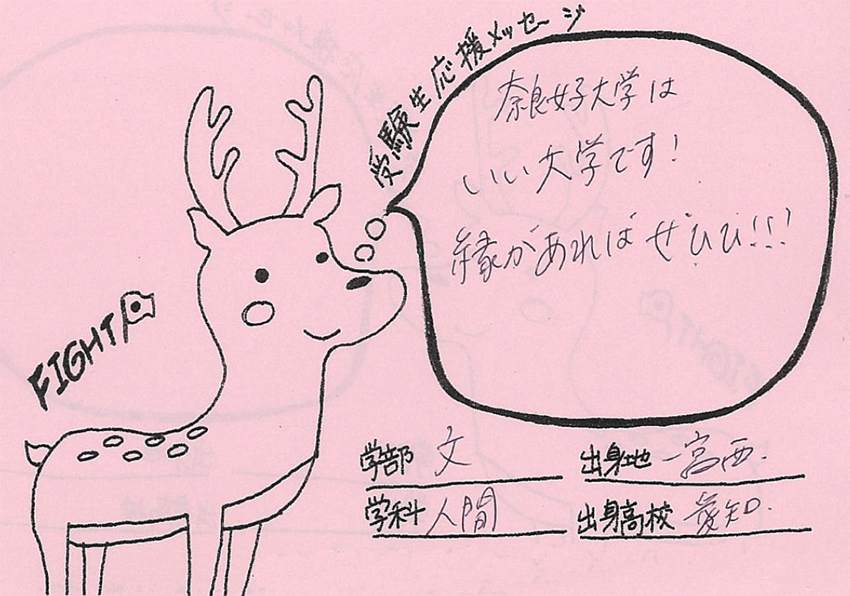 受験生応援メッセージ
奈良女子大学は
いい大学です!
縁があればぜひひ!!!
FIGHT
学部 文
出身地 一宮西.
学科 人間
出身高校 愛知.